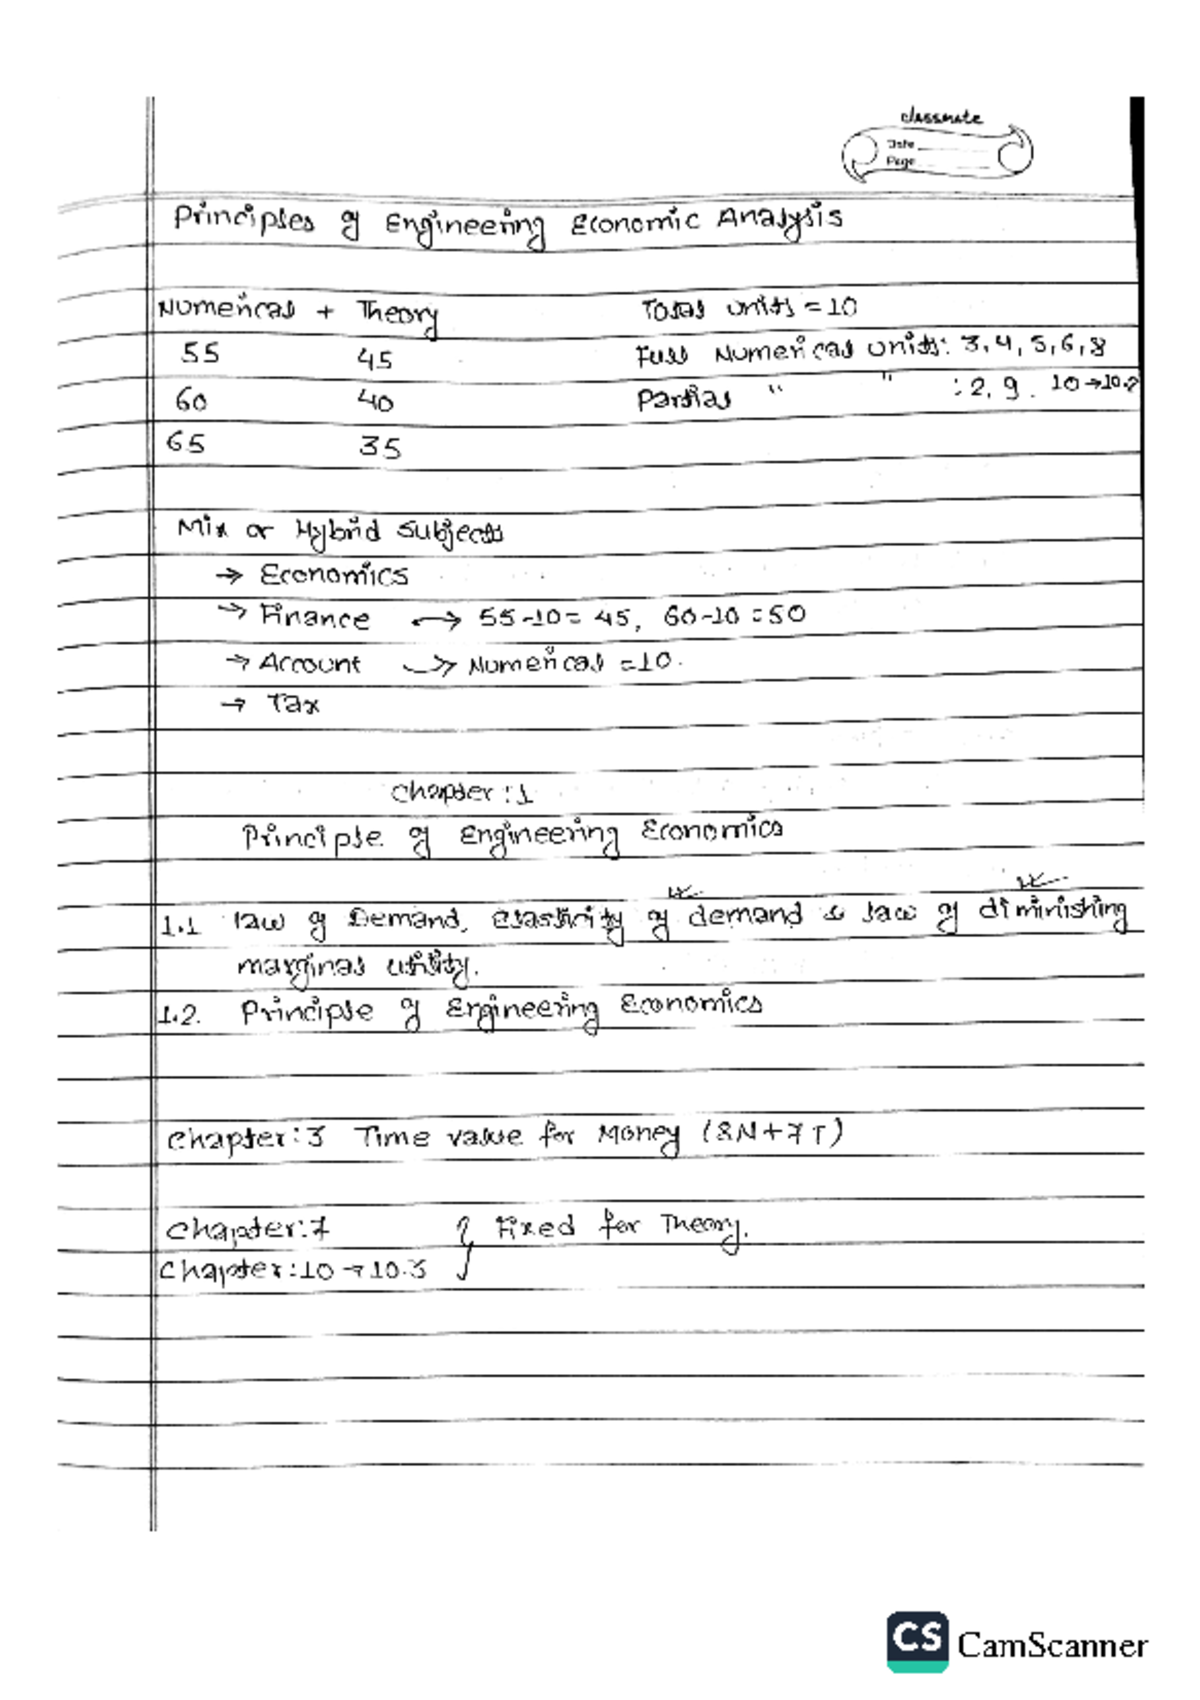 classmate
Date
Page
Principles of Engineering Economic Analysis
Numerical + Theory Total units = 10
55 45 Full Numerical units: 3, 4, 5, 6, 8
60 40 Partial " " : 2, 9. 10→10.2
65 35
Mix or Hybrid subjects
→ Economics
→ Finance ↔ 55-10 = 45, 60-10 = 50
→ Account → Numerical = 10.
→ Tax
Chapter : 1
Principle of Engineering Economics
1.1 law of Demand, Elasticity of demand & law of diminishing
marginal utility.
1.2. Principle of Engineering Economics
Chapter: 3 Time value for Money (8N+7T)
Chapter: 7 } Fixed for Theory.
Chapter: 10 → 10.3
CS CamScanner